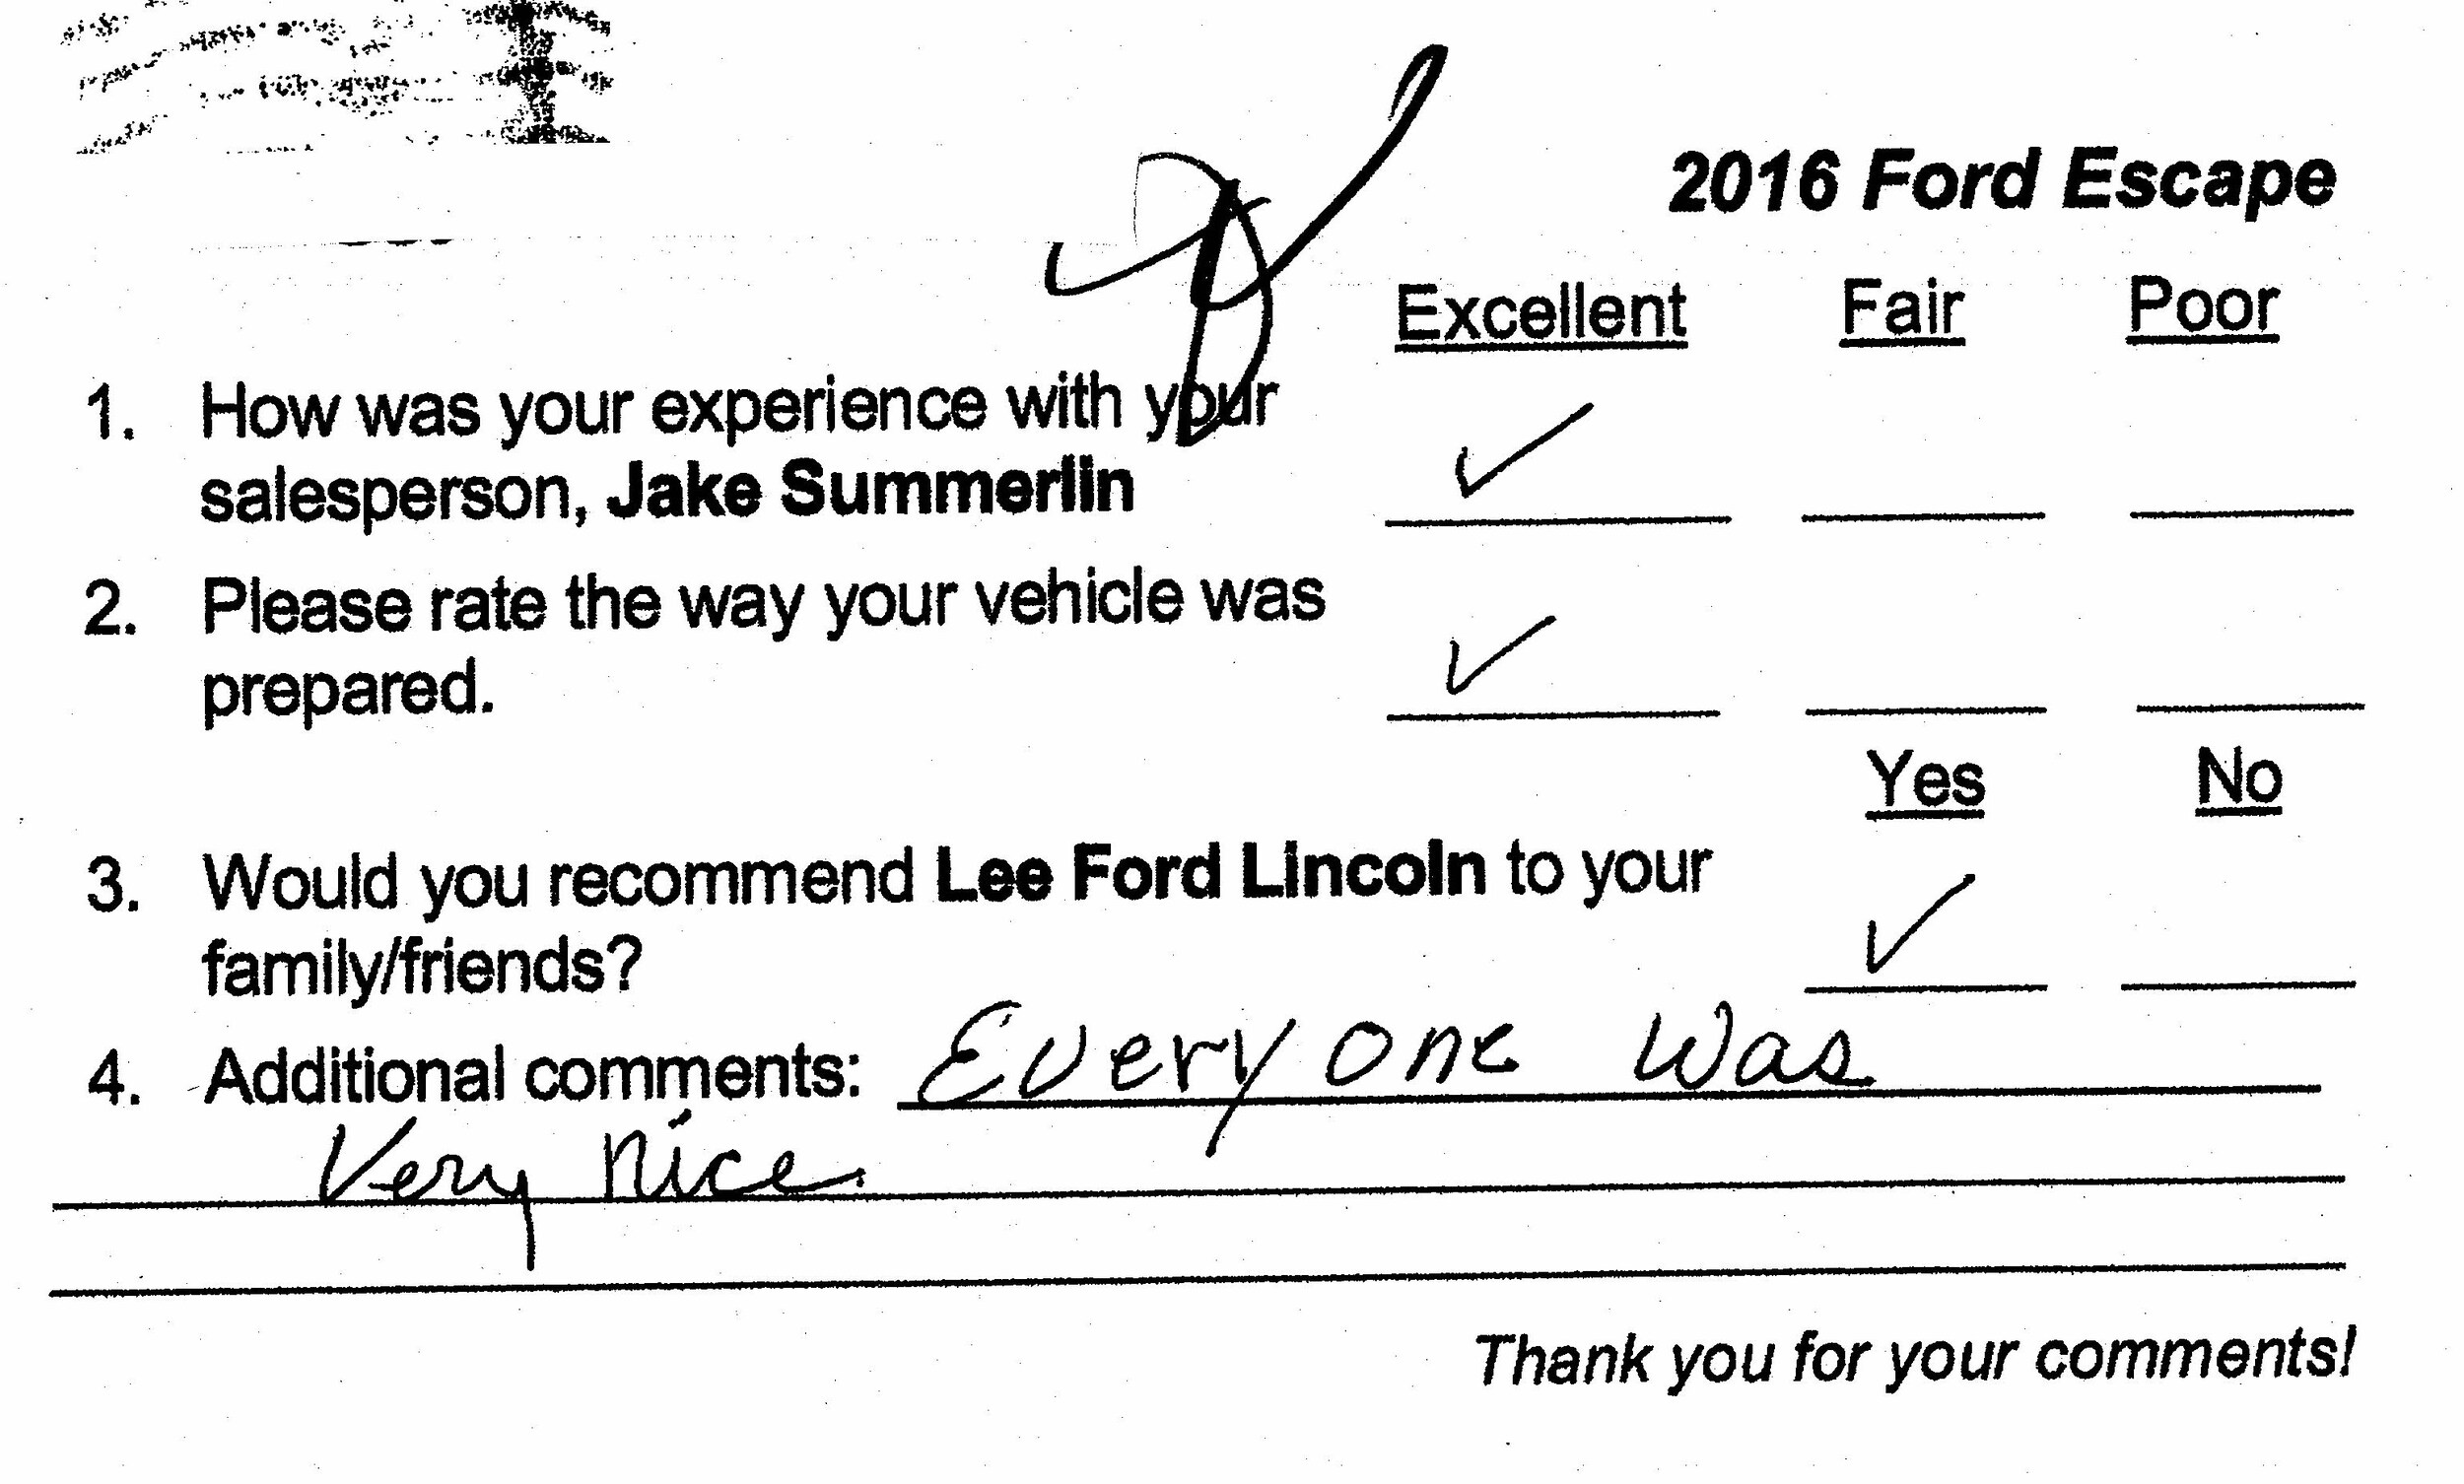 2016 Ford Escape
Excellent Fair Poor
1. How was your experience with your
salesperson, Jake Summerlin
2. Please rate the way your vehicle was
prepared.
Yes No
3. Would you recommend Lee Ford Lincoln to your
family/friends?
4. Additional comments: Everyone was
Very nice.
Thank you for your comments!